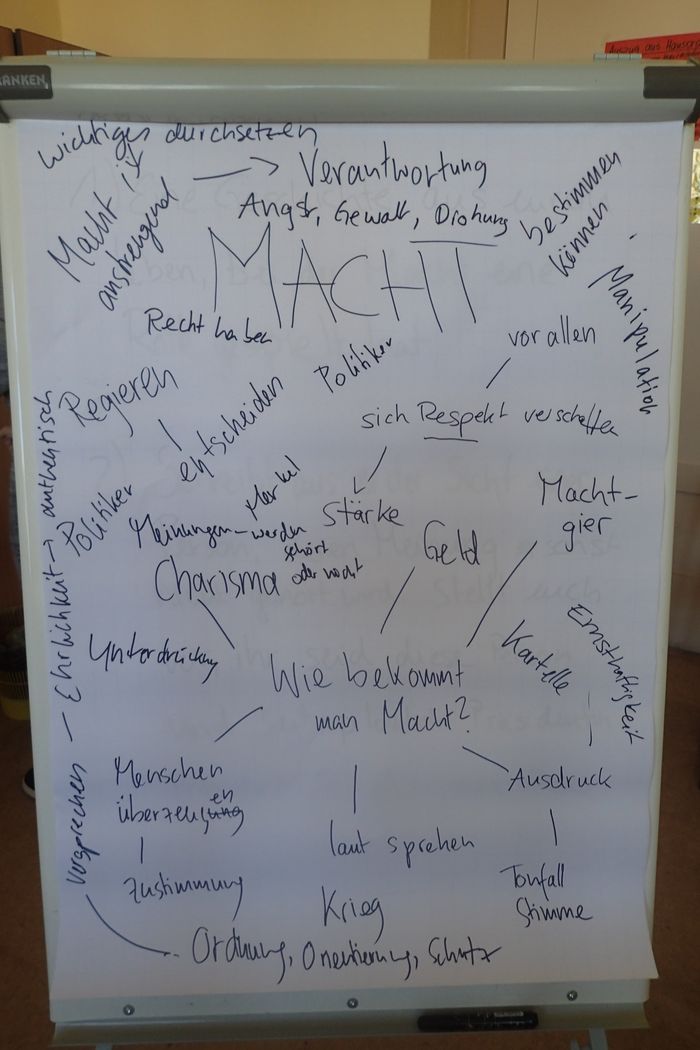 RANKEN
Auszug aus Hausor
wichtiges durchsetzen
Macht ist
anstrengend
Verantwortung
Angst, Gewalt, Drohung
bestimmen
können
MACHT
Manipulation
Recht haben
vor allen
Politiker
Regieren
entscheiden
sich Respekt verschaffen
Stärke
Merkel
Politiker
Meinungen - werden
gehört
oder nicht
Charisma
Geld
Macht-
gier
Unterdrückung
Wie bekommt
man Macht?
Kartelle
Ernsthaftigkeit
Menschen
überzeugen
Ausdruck
laut sprehen
Zustimmung
Tonfall
Stimme
Krieg
Vorsprechen – Ehrlichkeit → authentisch
Ordnung, Orientierung, Schutz